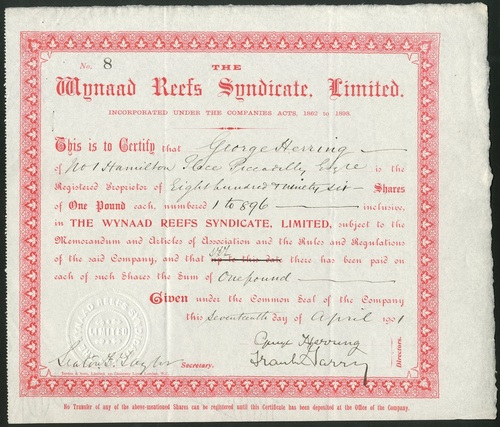 No. 8
THE
Wynaad Reefs Syndicate, Limited.
INCORPORATED UNDER THE COMPANIES ACTS, 1862 to 1898.
This is to Certify that George Herring
of No 1 Hamilton Place Piccadilly Esqre is the
Registered Proprietor of Eight hundred & ninety six Shares
of One Pound each, numbered 1 to 896 inclusive,
in THE WYNAAD REEFS SYNDICATE, LIMITED, subject to the
Memorandum and Articles of Association and the Rules and Regulations
of the said Company, and that up to this date there has been paid on
each of such Shares the Sum of One pound
Given under the Common Seal of the Company
this Seventeenth day of April 1901
WYNAAD REEFS SYNDICATE
LIMITED
George Herring
Frank
Directors.
Secretary.
No Transfer of any of the above-mentioned Shares can be registered until this Certificate has been deposited at the Office of the Company.